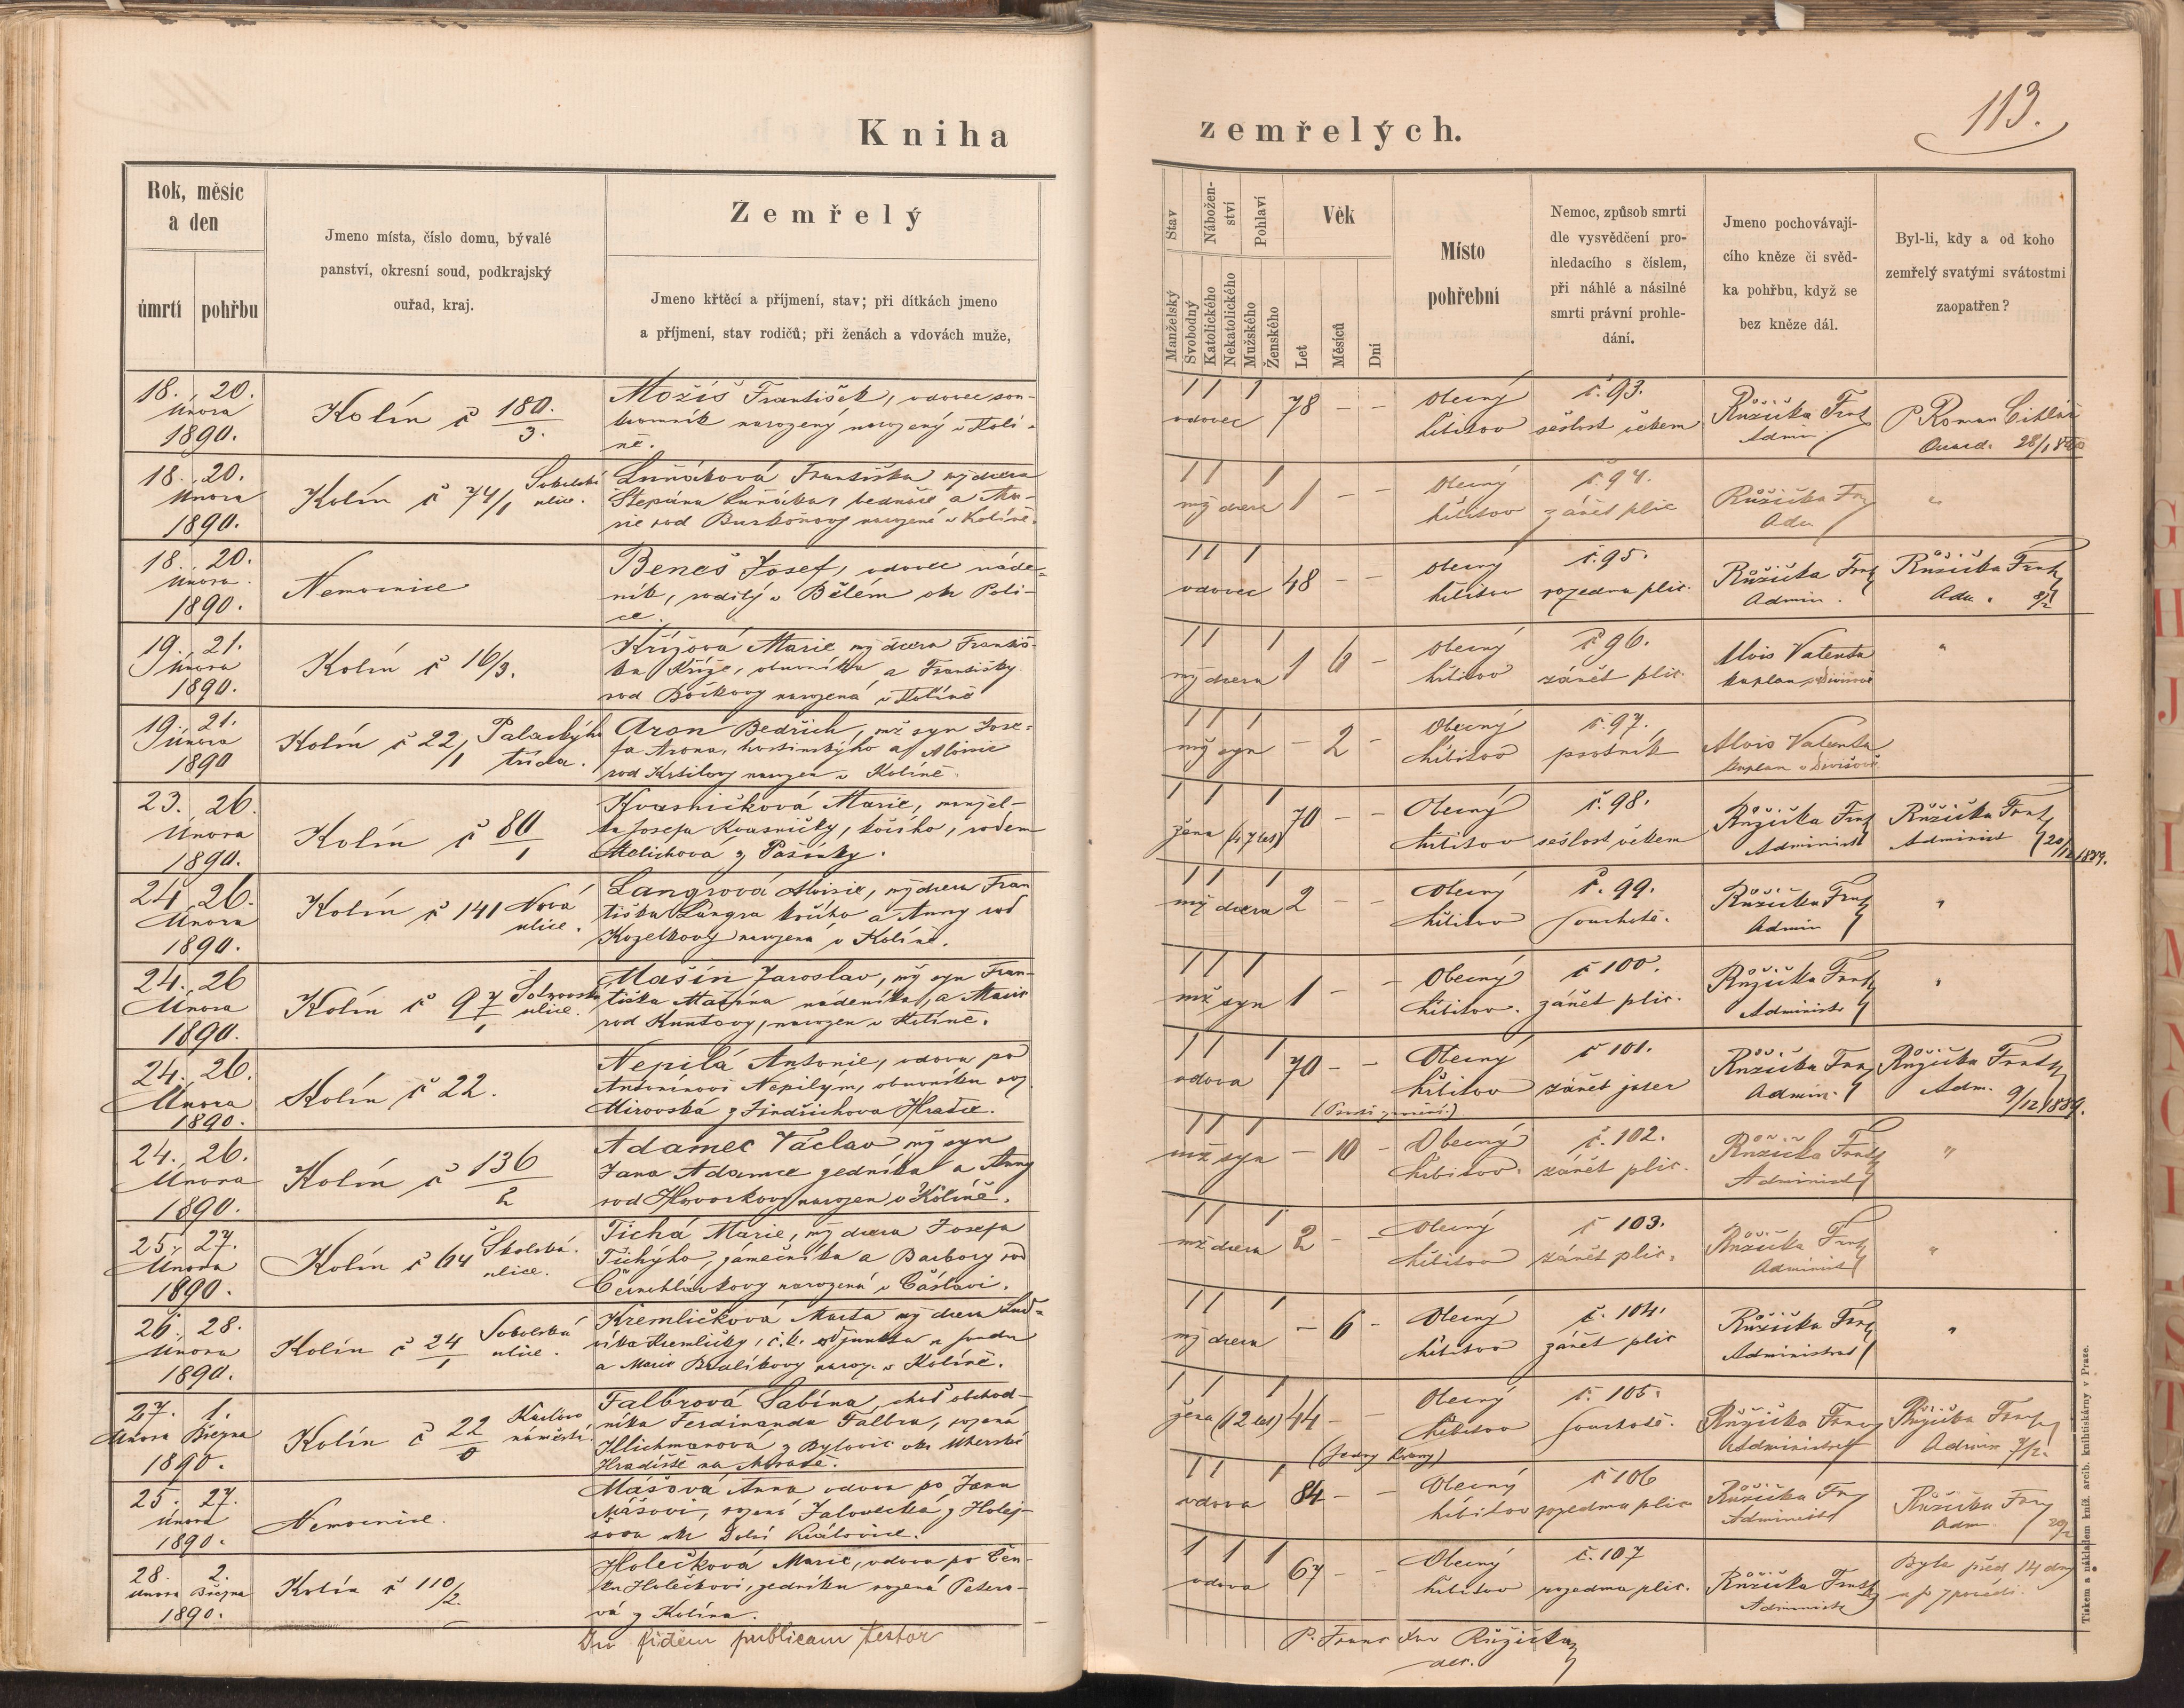 113.
Kniha zemřelých.
Rok, měsíc
a den
úmrtí pohřbu
Jmeno místa, číslo domu, bývalé
panství, okresní soud, podkrajský
ouřad, kraj.
Zemřelý
Jmeno křtěcí a příjmení, stav; při dítkách jmeno
a příjmení, stav rodičů; při ženách a vdovách muže,
Stav
Manželský
Svobodný
Nábožen-
ství
Katolického
Nekatolického
Pohlaví
Mužského
Ženského
Věk
Let
Měsíců
Dní
Místo
pohřební
Nemoc, způsob smrti
dle vysvědčení pro-
hledacího s číslem,
při náhlé a násilné
smrti právní prohle-
dání.
Jmeno pochovávají-
cího kněze či svěd-
ka pohřbu, když se
bez kněze dál.
Byl-li, kdy a od koho
zemřelý svatými svátostmi
zaopatřen?
18. 20.
února
1890.
Kolín č 180./3.
Možíš František, vdovec sou-
kromník narozený narozený v Kolí-
ně.
1 1 1
vdovec 78 – –
Obecný
hřbitov
č. 93.
sešlost věkem
Růžička Frant
Admin
P. Roman Cihlář
18. 20.
února
1890.
Kolín č 74/1 ulice.
Františka mž dcera
Štěpána bednáře a Ma-
rie rod narozená v Kolíně.
1 1 1
mž dcera 1 – –
Obecný
hřbitov
č. 94.
zánět plic
Růžička Fr
Adm
"
18. 20.
února.
1890.
Nemocnice
Beneš Josef, vdovec náde-
ník, rodilý v Bělém okr Poli-
ce.
1 1 1
vdovec 48 – –
obecný
hřbitov
č. 95.
rozedma plic.
Růžička Frant
Admin.
Růžička Frant
Adm. 8/2
19. 21.
února
1890.
Kolín č 16/3.
Křížová Marie mž dcera Františ-
ka Kříže, obuvníka a Františky
rod narozená v Kolíně
1 1 1
mž dcera 1 6 –
obecný
hřbitov
č 96.
zánět plic.
Alois Valenta
kaplan z Divišově
"
19. 21.
února
1890
Kolín č 22/1 Palackýho třída.
Aron Bedřich, mž syn Jose-
fa Arona, hostinského a Aloisie
rod narozen v Kolíně.
1 1 1
mž syn – 2 –
Obecný
hřbitov
č. 97.
psotník
Alois Valenta
kaplan v Divišově.
23. 26.
Února
1890.
Kolín č 80/1
Kvasničková Marie, manžel-
ka Josefa Kvasničky, kočího, rodem
Melichová z Pašinky.
1 1 1
žena 70 – –
Obecný
hřbitov
č. 98.
sešlost věkem
Růžička Frant
Administ
Růžička Frant
Administ 20/12 1889.
24. 26.
Února
1890.
Kolín č 141 Nová ulice.
Langrová Aloisie, mž dcera Fran
tiška Langra kočího a Anny rod
Kozelkovy narozená v Kolíně.
1 1 1
mž dcera 2 – –
Obecný
hřbitov
č. 99.
souchotě.
Růžička Frant
Admin
"
24. 26
Února
1890.
Kolín č 97/1 ulice.
Mašín Jaroslav, mž syn Fran-
tiška Mašína nádeníka, a Marie
rod Kuntovy, narozen v Kolíně.
1 1 1
mž syn 1 – –
Obecný
hřbitov.
č 100.
zánět plic.
Růžička Frant
Administr
"
24. 26.
Února
1890.
Kolín č 22.
Nepilá Antonie, vdova po
Antonínovi Nepilým, obuvníku roz.
Mirovská z Jindřichova Hradce.
1 1 1
vdova 70 – –
Obecný
hřbitov
č 101.
zánět jater
Růžička Fran
Admin.
Růžička Frant
Adm. 9/12 1889.
24. 26.
Února
1890.
Kolín č 136/2
Adamec Václav mž syn
Jana Adamce zedníka a Anny
rod Havorkovy narozen v Kolíně.
1 1 1
mž syn – 10 –
Obecný
hřbitov.
č. 102.
zánět plic.
Růžička Frant
Administ
"
25. 27.
Února
1890.
Kolín č 64 Školská ulice.
Tichá Marie, mž dcera Josefa
Tichýho, zámečníka a Barbory rod
Černohlávkovy narozená v Čáslavi.
1 1 1
mž dcera 2 – –
Obecný
hřbitov
č 103.
zánět plic.
Růžička Frant
Administ
"
26. 28.
února
1890.
Kolín č 24/1 ulice.
Kremličková Marta mž dcera Lud-
víka Kremličky, c. k. adjunkta u soudu
a Marie naroz. v Kolíně.
1 1 1
mž dcera – 6 –
Obecný
hřbitov
č. 104.
zánět plic
Růžička Frant
Administrat
"
27. 1.
Února Března
1890.
Kolín č 22/0 Karlovo náměstí.
Falbrová Sabina, choť obchod-
níka Ferdinanda Falbra, rozená
Illichmanová z Bylovic okr Uherské
Hradiště na Moravě.
1 1 1
žena (12 let) 44 – –
Obecný
hřbitov
č. 105.
souchotě.
Růžička Franz
Administrat
Růžička Frant
Admin 7/2.
25. 27.
února
1890.
Nemocnice.
Mášová Anna vdova po Janu
Mášovi, rozená Jalovecká z Holej-
šova okr Dolní Královice.
1 1 1
vdova 84 – –
Obecný
hřbitov
č 106
rozedma plic
Růžička Fr
Administ
Růžička Fran
Adm 20/2
28. 2.
února Března
1890.
Kolín č 110/2.
Holečková Marie, vdova po Čeň-
ku Holečkovi, zedníku rozená Petero-
vá z Kolína.
1 1 1
vdova 67 – –
Obecný
hřbitov
č. 107
rozedma plic.
Růžička Frant
Administr
Byla před 14 dny
u sv zpovědi.
In fidem publicam testor
P. Franc Růžička
Tiskem a nákladem kníž. arcib. knihtiskárny v Praze.